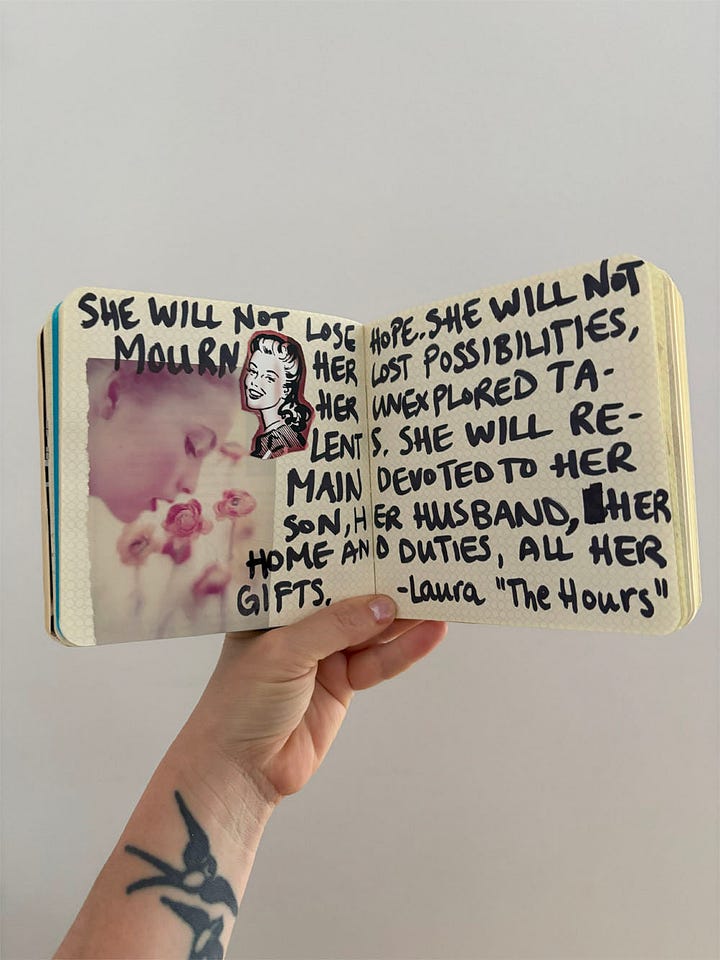 SHE WILL NOT LOSE HOPE. SHE WILL NOT
MOURN HER LOST POSSIBILITIES,
HER UNEXPLORED TA-
LENTS. SHE WILL RE-
MAIN DEVOTED TO HER
SON, HER HUSBAND, HER
HOME AND DUTIES, ALL HER
GIFTS. -Laura "The Hours"